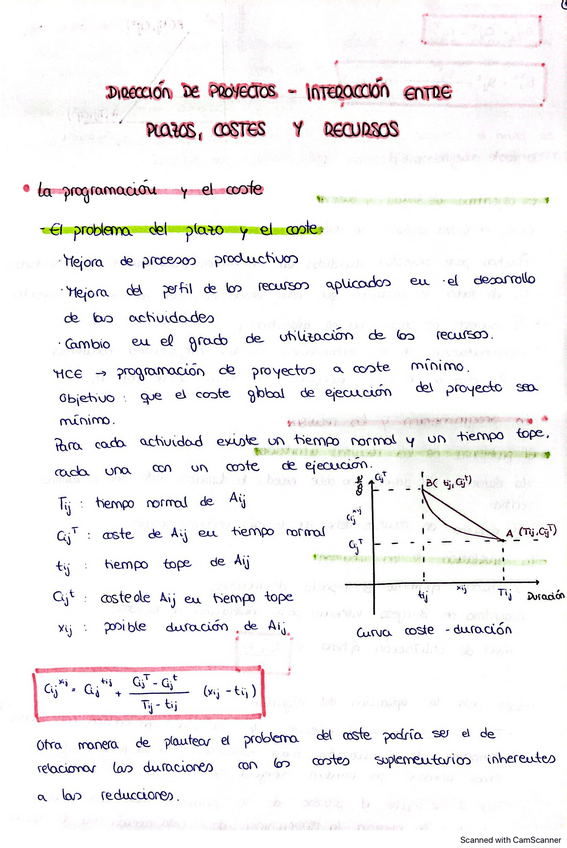 DIRECCIÓN DE PROYECTOS - INTERACCIÓN ENTRE
PLAZOS, COSTES Y RECURSOS
• La programación y el coste
- El problema del plazo y el coste.
· Mejora de procesos productivos
· Mejora del perfil de los recursos aplicados en el desarrollo
de las actividades
· Cambio en el grado de utilización de los recursos.
MCE → programación de proyectos a coste mínimo.
Objetivo: que el coste global de ejecución del proyecto sea
mínimo.
Para cada actividad existe un tiempo normal y un tiempo tope,
cada una con un coste de ejecución.
Tij : tiempo normal de Aij
Cij^T : coste de Aij en tiempo normal
tij : tiempo tope de Aij
Cij^t : coste de Aij en tiempo tope
xij : posible duración de Aij.
Cij^T
B( tij, Cij^T)
Cij^xij
Cij^T
A (Tij, Cij^T)
tij xij Tij Duración
Curva coste - duración
Cij^xij = Cij^tij + (Cij^T - Cij^t) / (Tij - tij) (xij - tij)
Otra manera de plantear el problema del coste podría ser el de
relacionar las duraciones con los costes suplementarios inherentes
a las reducciones.
Scanned with CamScanner